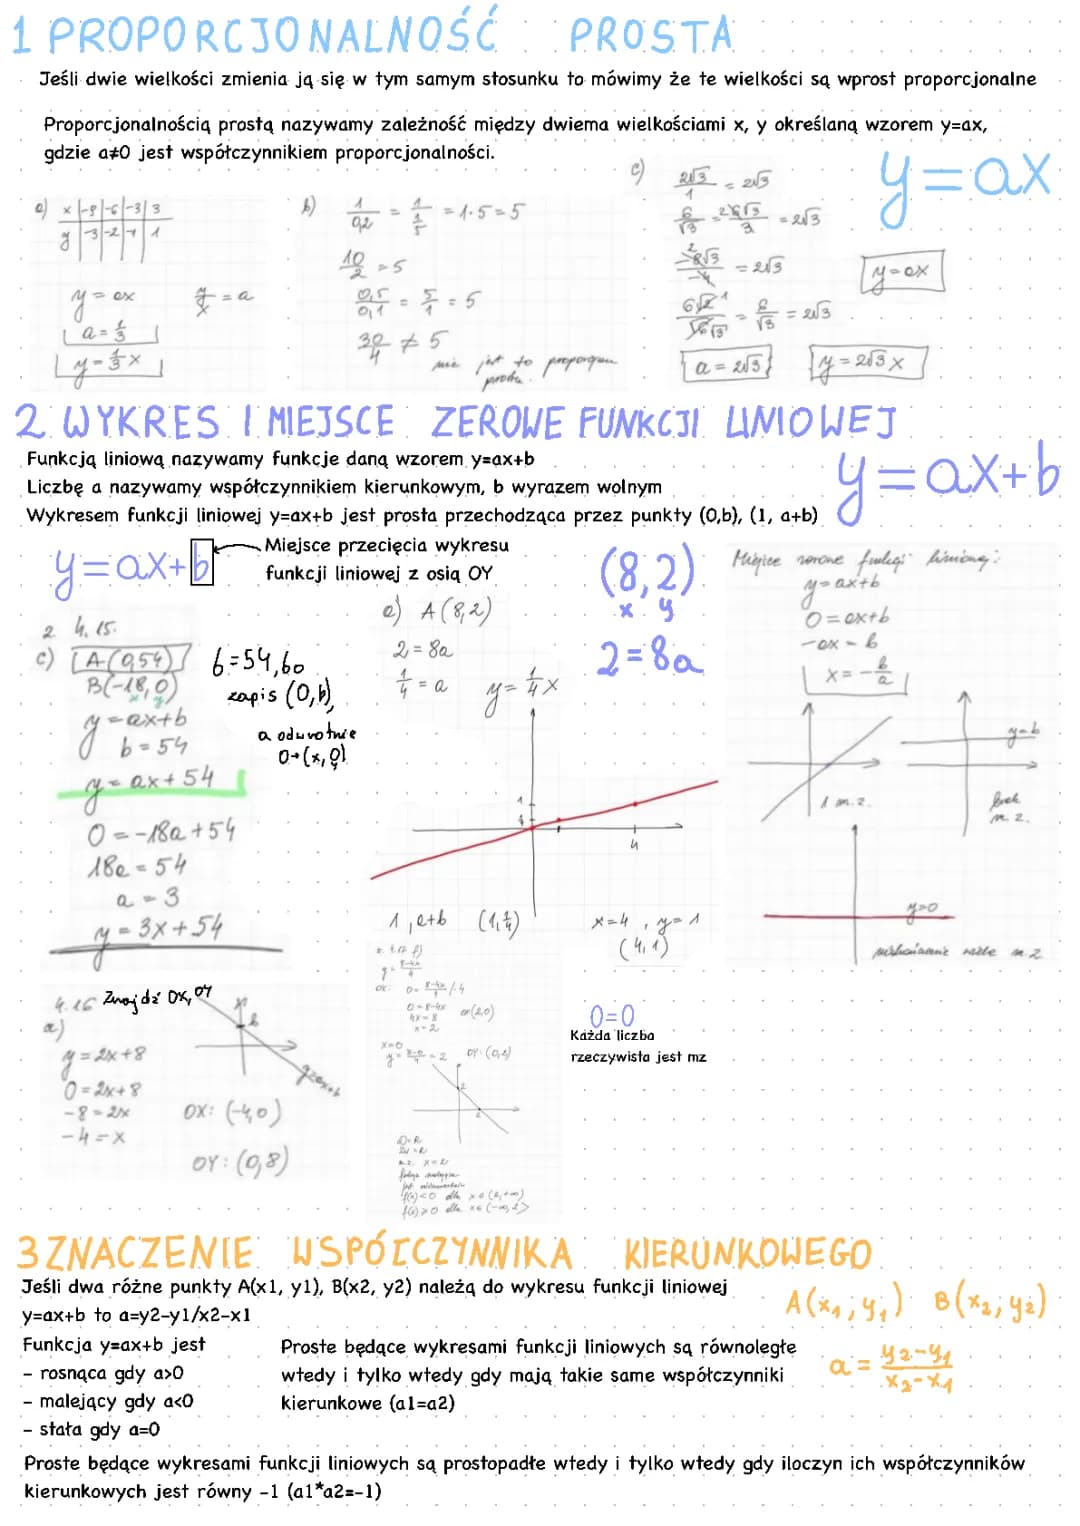 1 PROPORCJONALNOŚĆ PROSTA
Jeśli dwie wielkości zmienia ją się w tym samym stosunku to mówimy że te wielkości są wprost proporcjonalne
Proporcjonalnością prostą nazywamy zależność między dwiema wielkościami x, y określaną wzorem y=ax,
gdzie a≠0 jest współczynnikiem proporcjonalności.
y=ax
a) x -9 -6 -3 3
y -3 -2 -1 1
y=ax y/x = a
a = 1/3
y = 1/3 x
b) 1/0,2 = 1/(1/5) = 1·5 = 5
10/2 = 5
0,5/0,1 = 5/1 = 5
30/4 ≠ 5
nie jest to proporcjon
prosta.
c) 2√3/1 = 2√3
6/√3 = 2 6√3/3 = 2√3
-8√3/-4 = 2√3
= 6/√3 = 2√3
y=ax
a = 2√3
y = 2√3 x
2. WYKRES I MIEJSCE ZEROWE FUNKCJI LINIOWEJ
Funkcją liniową nazywamy funkcje daną wzorem y=ax+b
Liczbę a nazywamy współczynnikiem kierunkowym, b wyrazem wolnym
Wykresem funkcji liniowej y=ax+b jest prosta przechodząca przez punkty (0,b), (1, a+b)
y=ax+b
y=ax+b
Miejsce przecięcia wykresu
funkcji liniowej z osią OY
2 4.15.
c) A(0,54)
B(-18,0)
x y
y=ax+b
b=54
y=ax+54
0=-18a+54
18a=54
a=3
y=3x+54
b=54, bo
zapis (0,b),
a odwrotnie
0→(x,0)
e) A(8,2)
2=8a
1/4 = a
y = 1/4 x
1
1/4
4
1, a+b (1, 1/4)
x=4, y=1
(4,1)
(8,2)
x y
2=8a
Miejsce zerowe funkcji liniowej:
y=ax+b
0=ax+b
-ax=b
x = -b/a
1 m.z.
y=b
brak
m.z.
y=0
m.z
4.16 Znajdź OX, OY
a)
y=2x+8
0=2x+8
-8=2x
-4=x
b
y=ax+b
OX: (-4,0)
OY: (0,8)
f)
y = 8-4x/4
OX: 0 = 8-4x/4 /·4
0=8-4x
4x=8
x=2
OX (2,0)
x=0
y = 8-0/4 = 2 OY: (0,2)
D=R
ZW=R
m.z. x=2
f(x)<0 dla x∈(2,+∞)
0=0
Każda liczba
rzeczywista jest mz
3 ZNACZENIE WSPÓŁCZYNNIKA KIERUNKOWEGO
Jeśli dwa różne punkty A(x1, y1), B(x2, y2) należą do wykresu funkcji liniowej
y=ax+b to a=y2-y1/x2-x1
A(x₁, y₁) B(x₂, y₂)
a = y₂-y₁/x₂-x₁
Funkcja y=ax+b jest
- rosnąca gdy a>0
- malejący gdy a<0
- stała gdy a=0
Proste będące wykresami funkcji liniowych są równoległe
wtedy i tylko wtedy gdy mają takie same współczynniki
kierunkowe (a1=a2)
Proste będące wykresami funkcji liniowych są prostopadłe wtedy i tylko wtedy gdy iloczyn ich współczynników
kierunkowych jest równy -1 (a1*a2=-1)